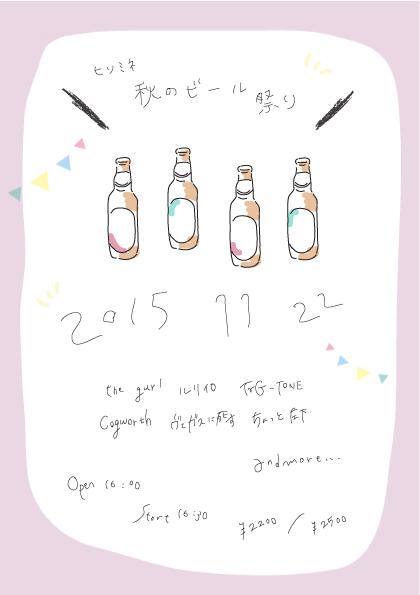 ヒソミネ
秋のビール祭り
2015 11 22
the gurl ルリイロ TrG-TONE
Cogworth ヴェガスに成す ちょっと左下
andmore...
Open 16:00
Start 16:30
¥2200 / ¥2500